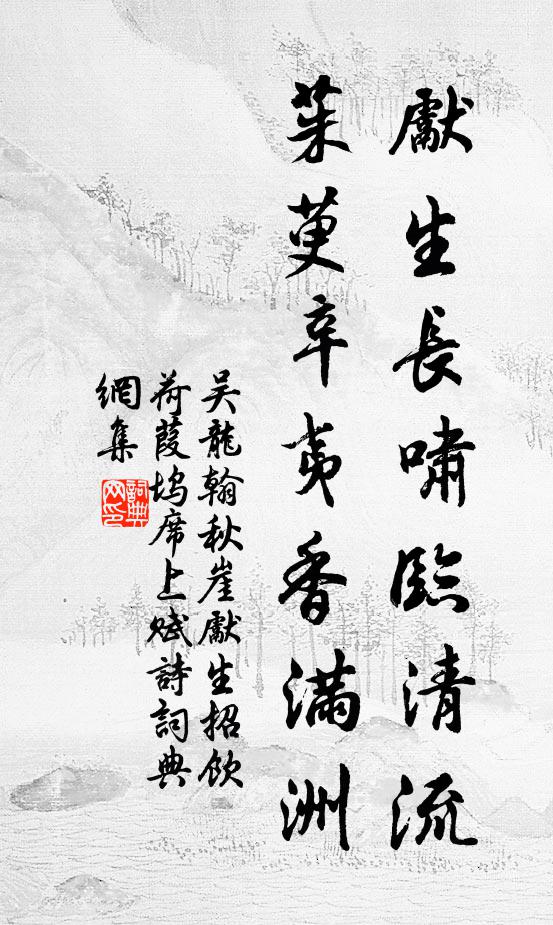 獻生長嘯臨清流
茱萸辛夷香滿洲
吴龍翰秋崖獻生招飲
荷葭塢席上賦詩詞典
網集
詞典
网印